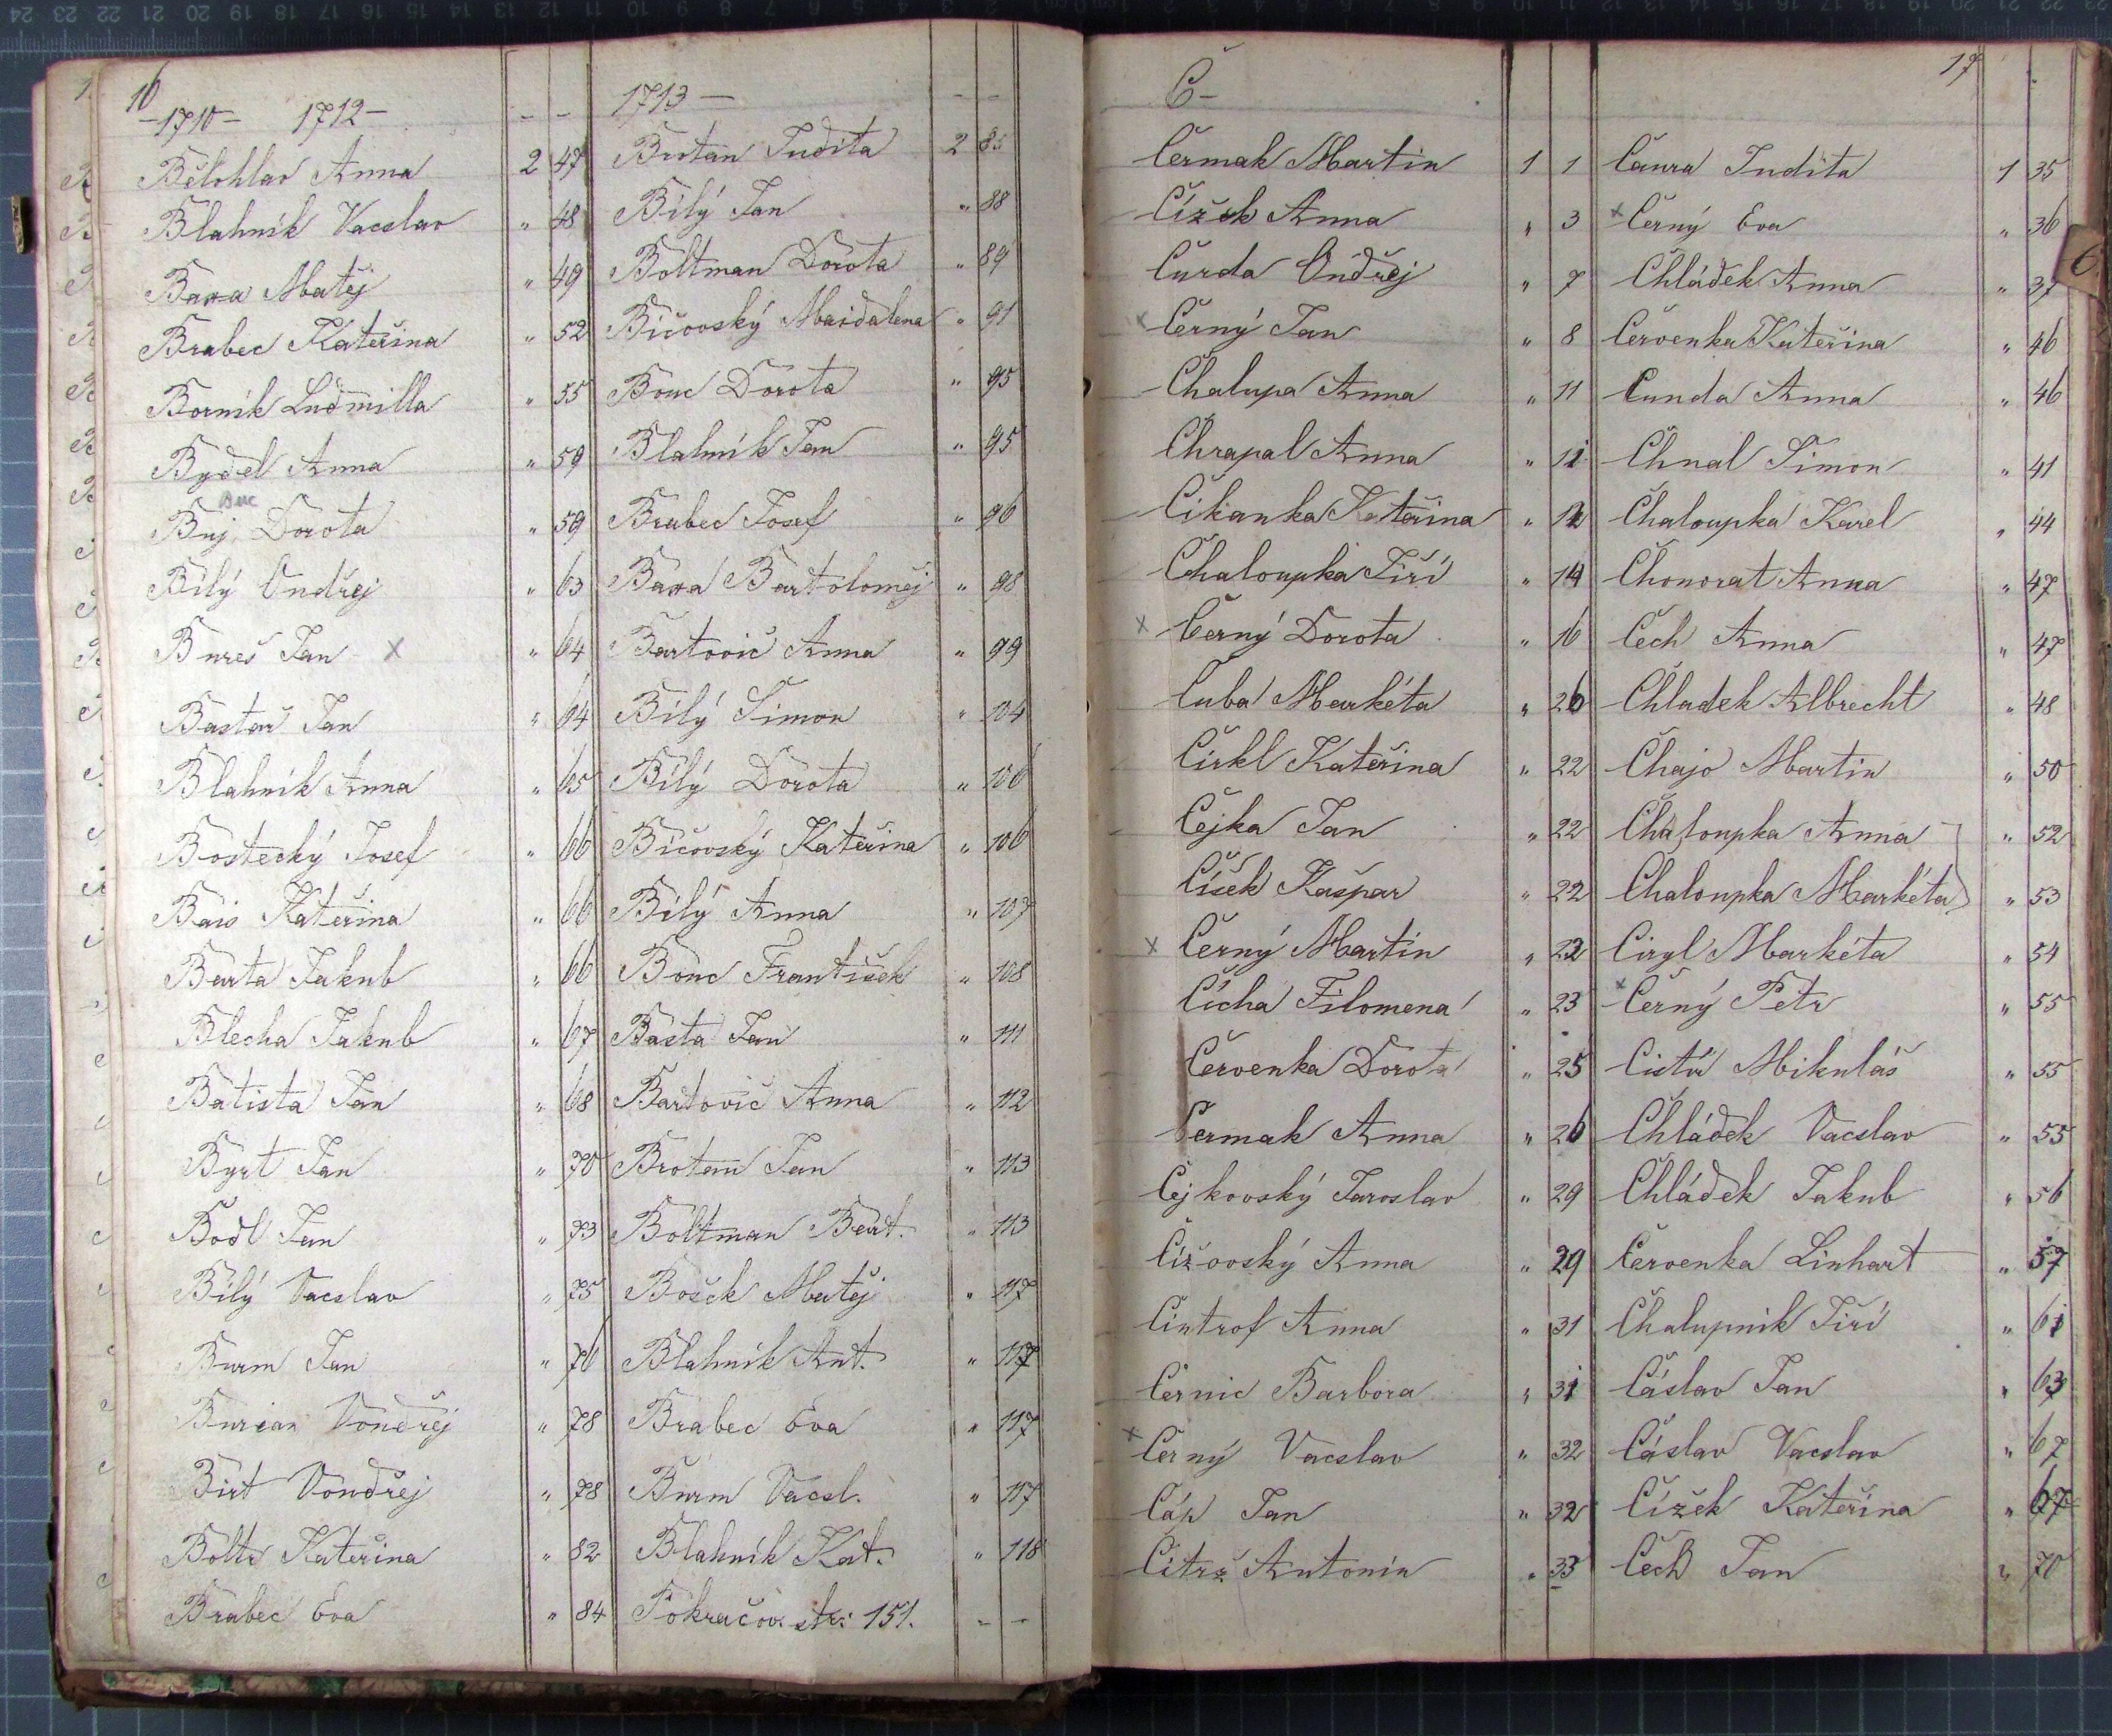 16
-1710- 1712-
Bělohlav Anna 2 47
Blahník Vacslav " 48
Baxa Matěj " 49
Brabec Kateřina " 52
Borník Ludmilla " 55
Bydel Anna " 59
Buc
Buj Dorota " 59
Bílý Ondřej " 63
Bureš Jan x " 64
Bastař Jan " 64
Blahník Anna " 65
Bostecký Josef " 66
Bais Kateřina " 66
Barta Jakub " 66
Blecha Jakub " 67
Batista Jan " 68
Byrt Jan " 70
Bodl Jan " 73
Bílý Vacslav " 75
Burm Jan " 76
Burian Vondřej " 78
Birt Vondřej " 78
Boltr Kateřina " 82
Brabec Eva " 84
1713 - - -
Brotan Judita 2 85
Bílý Jan " 88
Boltman Dorota " 89
Bičovský Maidalena " 91
Bouc Dorota " 95
Blahník Jan " 95
Brabec Josef " 96
Baxa Bartoloměj " 98
Bartovic Anna " 99
Bílý Šimon " 104
Bílý Dorota " 106
Bičovský Kateřina " 106
Bílý Anna " 107
Bouc František " 108
Basta Jan " 111
Bartovic Anna " 112
Brotan Jan " 113
Boltman Bart. " 113
Bošek Matěj " 117
Blahník Ant. " 117
Brabec Eva " 117
Burm Vacsl. " 117
Blahník Kat. " 118
Pokračov. str: 151. - -
Č-
Čermak Martin 1 1
Čížek Anna " 3
Čurda Ondřej " 7
x Černý Jan " 8
Chalupa Anna " 11
Chrapal Anna " 12
Cikanka Kateřina " 12
Chaloupka Jiří " 14
x Černý Dorota " 16
Čuba Markéta " 26
Cirkl Kateřina " 22
Čejka Jan " 22
Číšek Kašpar " 22
x Černý Martin " 22
Čícha Filomena " 23
Červenka Dorota " 25
Čermak Anna " 26
Čejkovský Jaroslav " 29
Čížovský Anna " 29
Cintrof Anna " 31
Černic Barbora " 31
x Černý Vacslav " 32
Čáp Jan " 32
Citrš Antonín " 33
17
Čaura Judita 1 35
x Černý Eva " 36
Chládek Anna " 37
Červenka Kateřina " 46
Čunda Anna " 46
Chnal Šimon " 41
Chaloupka Karel " 44
Chonorat Anna " 47
Čech Anna " 47
Chladek Albrecht " 48
Chajo Martin " 50
Chaloupka Anna " 52
Chaloupka Markéta " 53
Ciryl Markéta " 54
x Černý Petr " 55
Mikuláš " 55
Chládek Vacslav " 55
Chládek Jakub " 56
Červenka Linhart " 57
Chalupnik Jiří " 61
Čáslav Jan " 63
Čáslav Vacslav " 67
Čížek Kateřina " 67
Čech Jan " 70